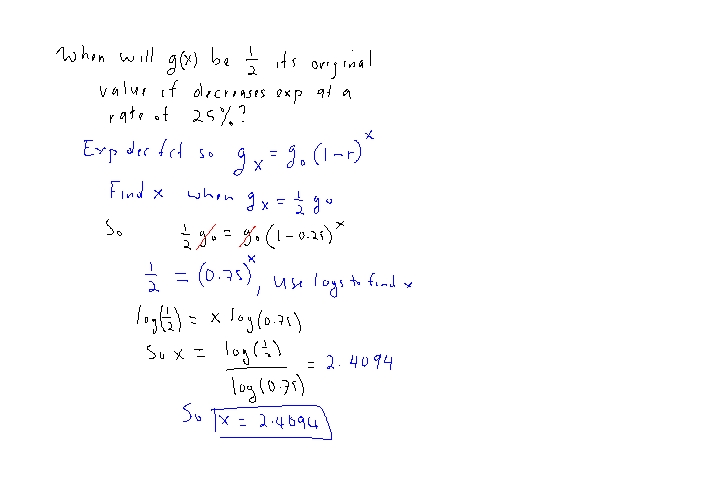 When will g(x) be 1/2 its original
value if decreases exp at a
rate of 25%?
Exp dec fct so g_x = g_0 (1-r)^x
Find x when g_x = 1/2 g_0
So 1/2 g_0 = g_0 (1-0.25)^x
1/2 = (0.75)^x, use logs to find x
log(1/2) = x log(0.75)
So x = log(1/2) / log(0.75) = 2.4094
So x = 2.4094